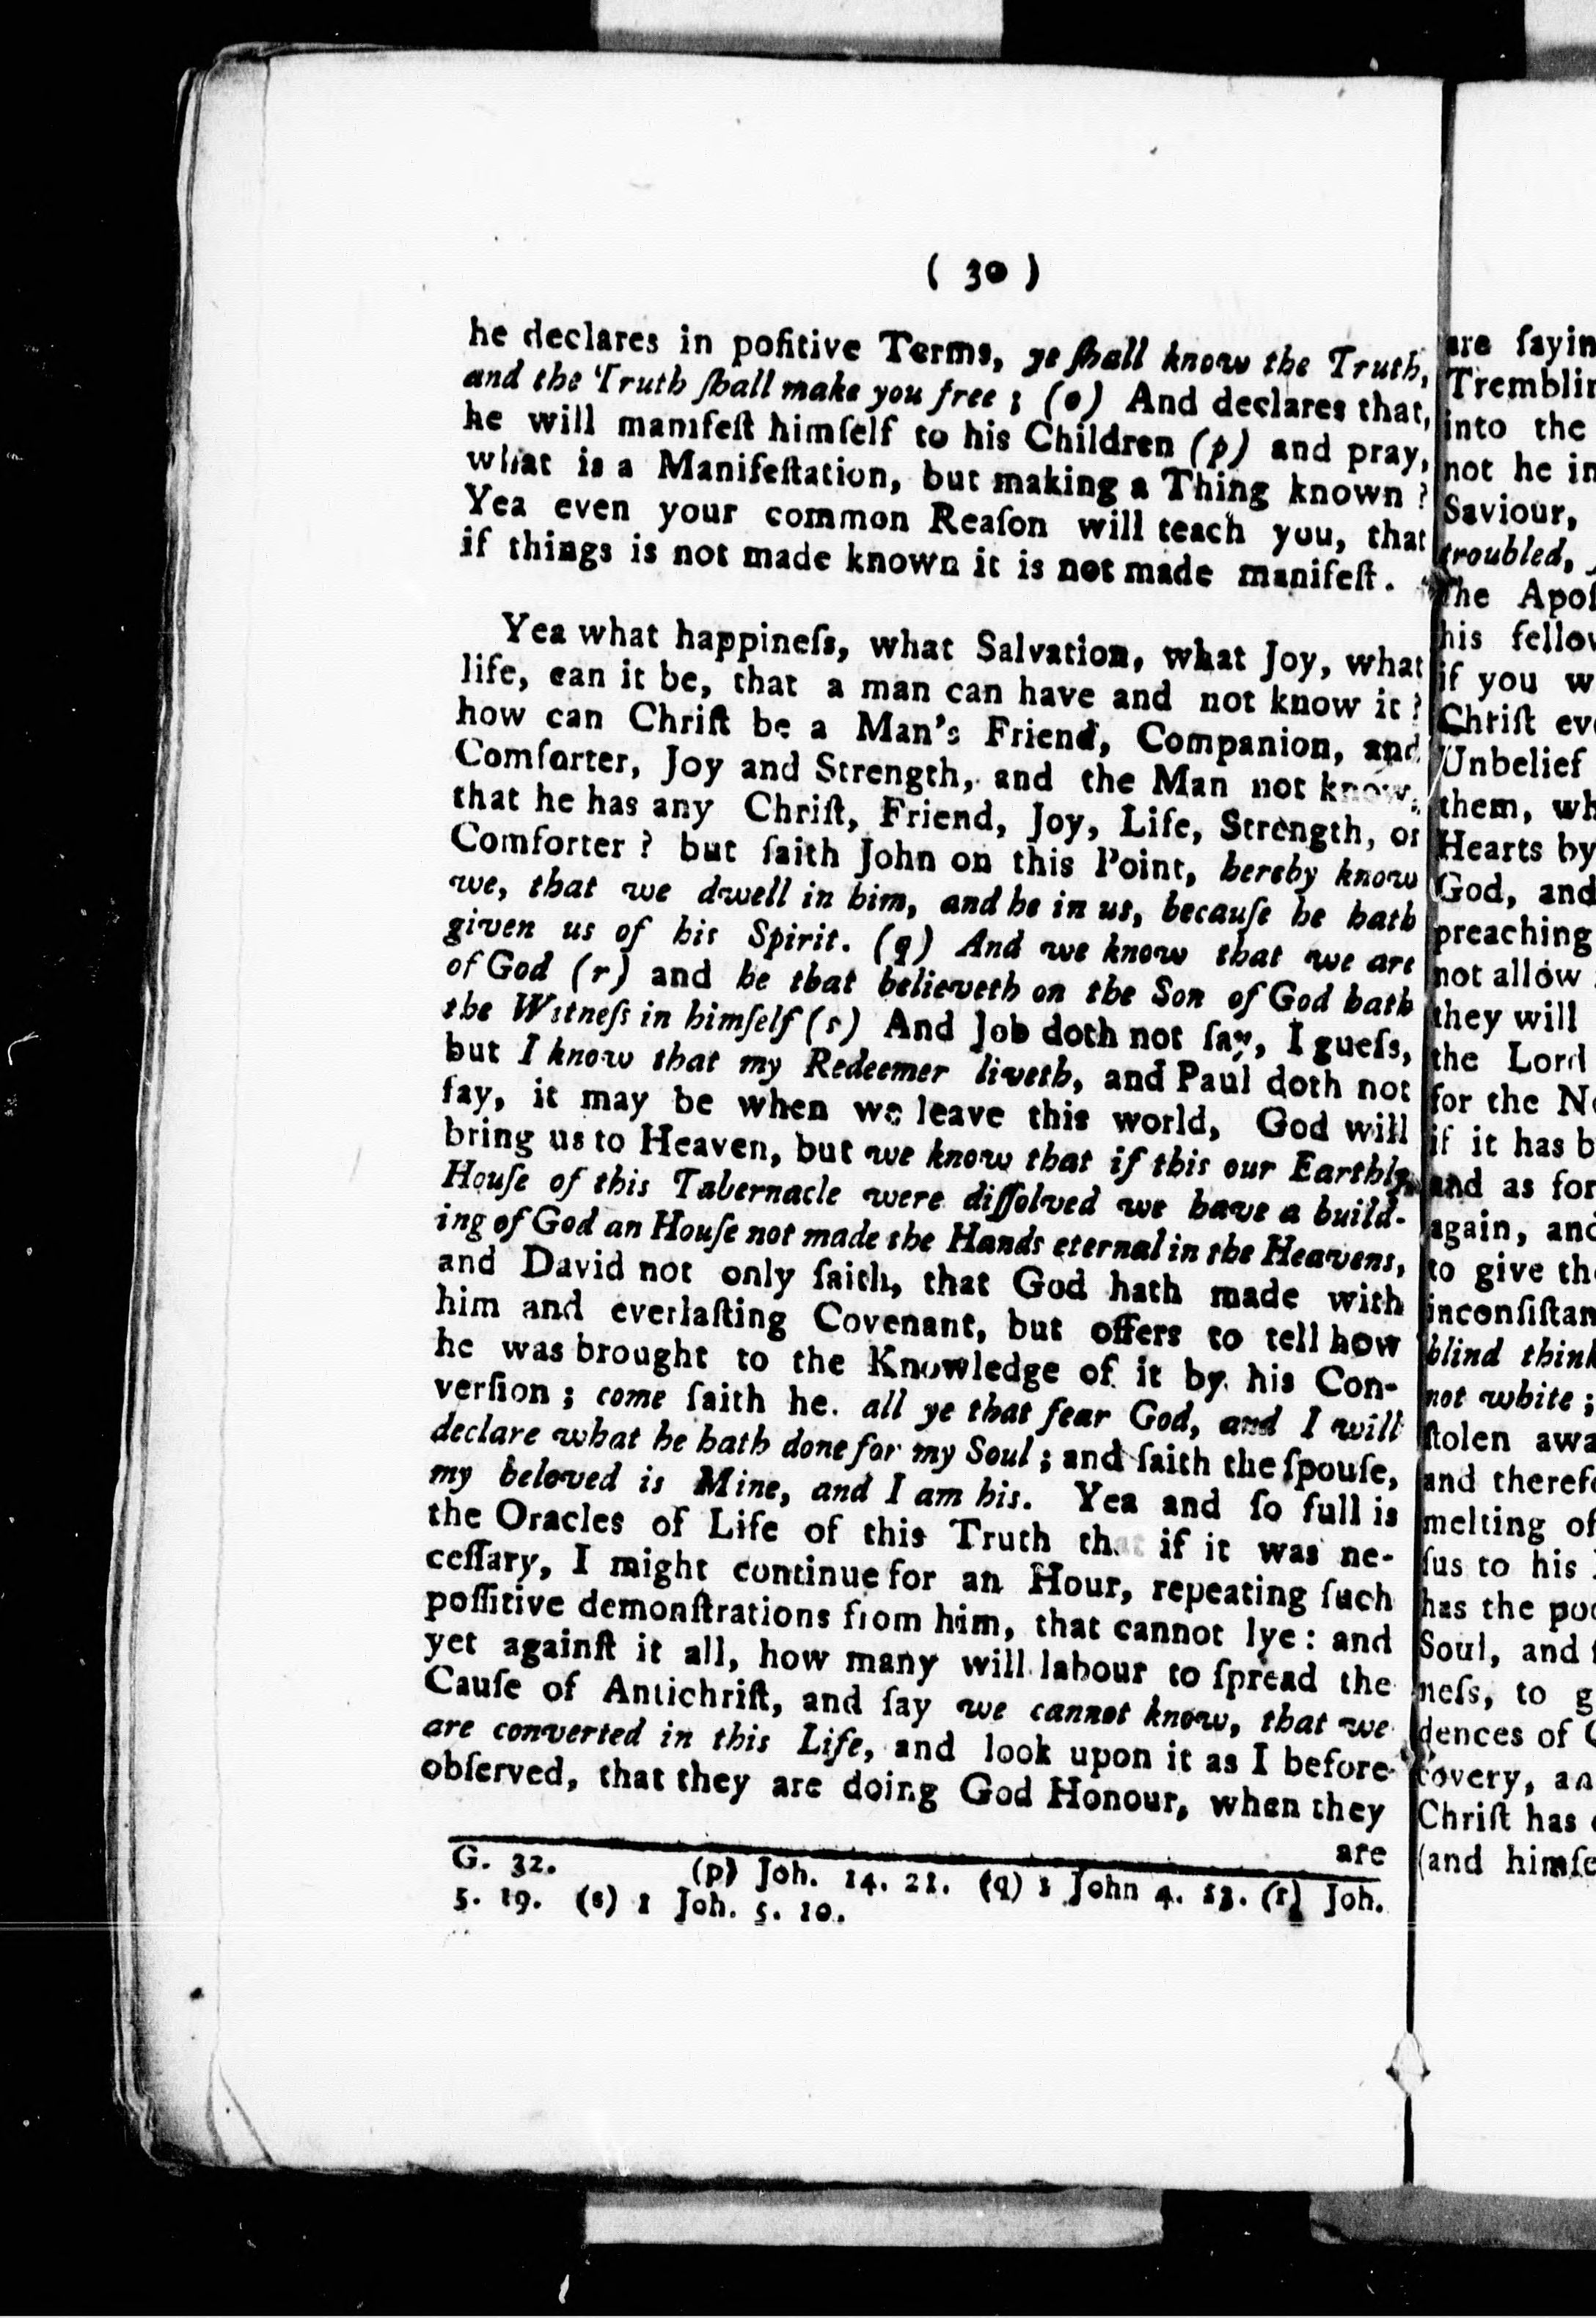 ( 30 )
he declares in poſitive Terms, ye ſhall know the Truth,
and the Truth ſhall make you free ; (o) And declares that,
he will manifeſt himſelf to his Children (p) and pray,
what is a Manifeſtation, but making a Thing known ?
Yea even your common Reaſon will teach you, that
if things is not made known it is not made manifeſt.
Yea what happineſs, what Salvation, what Joy, what
life, can it be, that a man can have and not know it ?
how can Chriſt be a Man's Friend, Companion, and
Comforter, Joy and Strength, and the Man not know,
that he has any Chriſt, Friend, Joy, Life, Strength, or
Comforter ? but ſaith John on this Point, hereby know
we, that we dwell in him, and he in us, becauſe he hath
given us of his Spirit. (q) And we know that we are
of God (r) and he that believeth on the Son of God hath
the Witneſs in himſelf (s) And Job doth not ſay, I gueſs,
but I know that my Redeemer liveth, and Paul doth not
ſay, it may be when we leave this world, God will
bring us to Heaven, but we know that if this our Earthly
Houſe of this Tabernacle were diſſolved we have a build-
ing of God an Houſe not made the Hands eternal in the Heavens,
and David not only ſaith, that God hath made with
him and everlaſting Covenant, but offers to tell how
he was brought to the Knowledge of it by his Con-
verſion ; come ſaith he. all ye that fear God, and I will
declare what he hath done for my Soul ; and ſaith the ſpouſe,
my beloved is Mine, and I am his. Yea and ſo full is
the Oracles of Life of this Truth that if it was ne-
ceſſary, I might continue for an Hour, repeating ſuch
poſſitive demonſtrations from him, that cannot lye : and
yet againſt it all, how many will labour to ſpread the
Cauſe of Antichriſt, and ſay we cannot know, that we
are converted in this Life, and look upon it as I before
obſerved, that they are doing God Honour, when they
are
G. 32. (p) Joh. 14. 21. (q) 1 John 4. 13. (r) Joh.
5. 19. (s) 1 Joh. 5. 10.
are ſayin
Tremblin
into the
not he in
Saviour,
troubled,
The Apoſ
his fellow
if you w
Chriſt ev
Unbelief
them, wh
Hearts by
God, and
preaching
not allow
they will
the Lord
for the N
if it has b
and as for
again, and
to give th
inconſiſtan
blind think
not white ;
ſtolen awa
and therefo
melting of
ſus to his
has the poo
Soul, and
neſs, to g
dences of
covery, an
Chriſt has
(and himſe